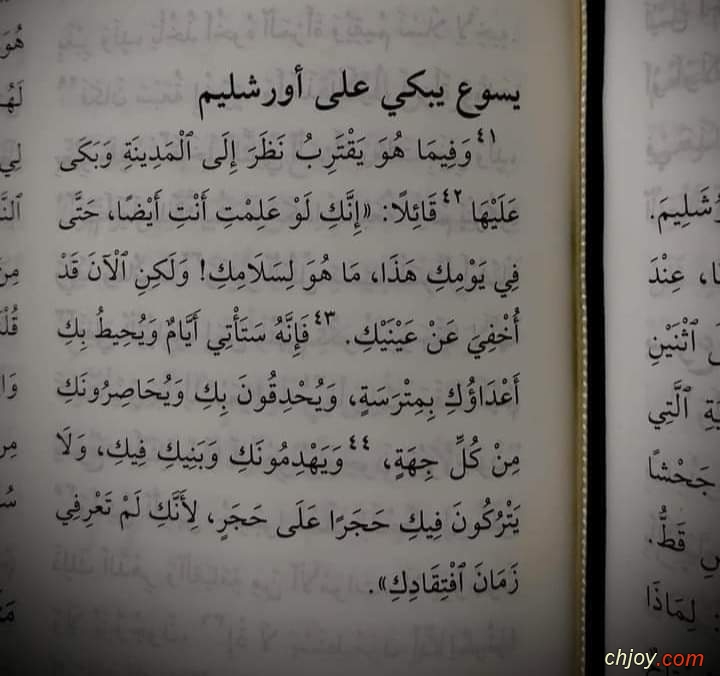 يسوع يبكي على أورشليم
٤١ وَفِيمَا هُوَ يَقْتَرِبُ نَظَرَ إِلَى ٱلْمَدِينَةِ وَبَكَى
عَلَيْهَا ٤٢ قَائِلًا: «إِنَّكِ لَوْ عَلِمْتِ أَنْتِ أَيْضًا، حَتَّى
فِي يَوْمِكِ هَذَا، مَا هُوَ لِسَلَامِكِ! وَلَكِنِ ٱلْآنَ قَدْ
أُخْفِيَ عَنْ عَيْنَيْكِ. ٤٣ فَإِنَّهُ سَتَأْتِي أَيَّامٌ وَيُحِيطُ بِكِ
أَعْدَاؤُكِ بِمِتْرَسَةٍ، وَيُحْدِقُونَ بِكِ وَيُحَاصِرُونَكِ
مِنْ كُلِّ جِهَةٍ، ٤٤ وَيَهْدِمُونَكِ وَبَنِيكِ فِيكِ، وَلَا
يَتْرُكُونَ فِيكِ حَجَرًا عَلَى حَجَرٍ، لِأَنَّكِ لَمْ تَعْرِفِي
زَمَانَ ٱفْتِقَادِكِ».
عِنْدَ
ٱثْنَيْنِ
ٱلَّتِي
جَحْشًا
قَطُّ.
لِمَاذَا
chjoy.com